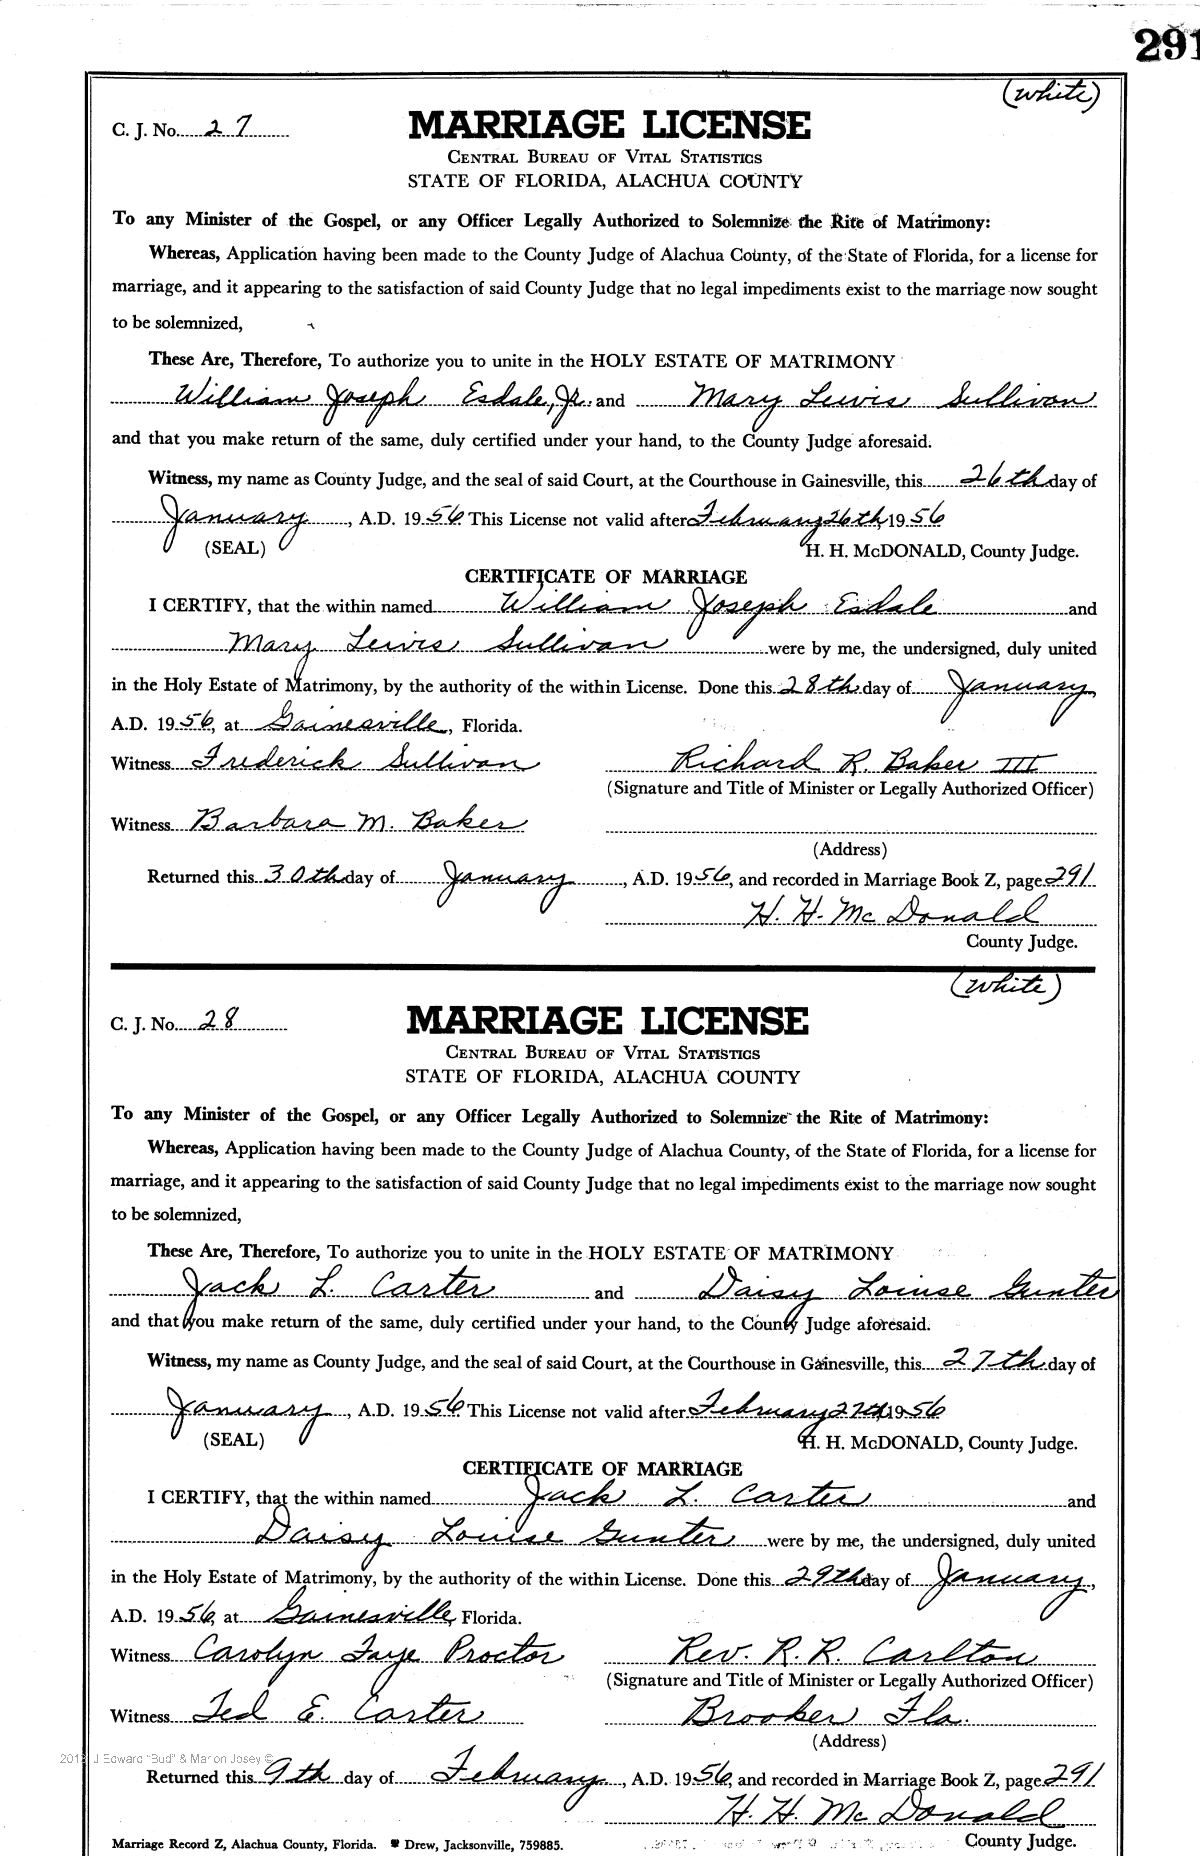 291
(White)
C. J. No. 27
MARRIAGE LICENSE
CENTRAL BUREAU OF VITAL STATISTICS
STATE OF FLORIDA, ALACHUA COUNTY
To any Minister of the Gospel, or any Officer Legally Authorized to Solemnize the Rite of Matrimony:
Whereas, Application having been made to the County Judge of Alachua County, of the State of Florida, for a license for
marriage, and it appearing to the satisfaction of said County Judge that no legal impediments exist to the marriage now sought
to be solemnized,
These Are, Therefore, To authorize you to unite in the HOLY ESTATE OF MATRIMONY
William Joseph Esdale, Jr. and Mary Lewis Sullivan
and that you make return of the same, duly certified under your hand, to the County Judge aforesaid.
Witness, my name as County Judge, and the seal of said Court, at the Courthouse in Gainesville, this 26th day of
January, A.D. 1956 This License not valid after February 26th, 1956
(SEAL) H. H. McDONALD, County Judge.
CERTIFICATE OF MARRIAGE
I CERTIFY, that the within named William Joseph Esdale and
Mary Lewis Sullivan were by me, the undersigned, duly united
in the Holy Estate of Matrimony, by the authority of the within License. Done this 28th day of January,
A.D. 1956, at Gainesville, Florida.
Witness Frederick Sullivan Richard R. Baker III
(Signature and Title of Minister or Legally Authorized Officer)
Witness Barbara M. Baker
(Address)
Returned this 30th day of January, A.D. 1956, and recorded in Marriage Book Z, page 291
H. H. McDonald
County Judge.
(White)
C. J. No. 28
MARRIAGE LICENSE
CENTRAL BUREAU OF VITAL STATISTICS
STATE OF FLORIDA, ALACHUA COUNTY
To any Minister of the Gospel, or any Officer Legally Authorized to Solemnize the Rite of Matrimony:
Whereas, Application having been made to the County Judge of Alachua County, of the State of Florida, for a license for
marriage, and it appearing to the satisfaction of said County Judge that no legal impediments exist to the marriage now sought
to be solemnized,
These Are, Therefore, To authorize you to unite in the HOLY ESTATE OF MATRIMONY
Jack L. Carter and Daisy Louise Gunter
and that you make return of the same, duly certified under your hand, to the County Judge aforesaid.
Witness, my name as County Judge, and the seal of said Court, at the Courthouse in Gainesville, this 27th day of
January, A.D. 1956 This License not valid after February 27th, 1956
(SEAL) H. H. McDONALD, County Judge.
CERTIFICATE OF MARRIAGE
I CERTIFY, that the within named Jack L. Carter and
Daisy Louise Gunter were by me, the undersigned, duly united
in the Holy Estate of Matrimony, by the authority of the within License. Done this 29th day of January,
A.D. 1956, at Gainesville, Florida.
Witness Carolyn Faye Proctor Rev. R. R. Carlton
(Signature and Title of Minister or Legally Authorized Officer)
Witness Ted E. Carter Brooker Fla.
(Address)
J Edward "Bud" & Marion Josey ©
Returned this 9th day of February, A.D. 1956, and recorded in Marriage Book Z, page 291
H. H. McDonald
Marriage Record Z, Alachua County, Florida. Drew, Jacksonville, 759885. County Judge.